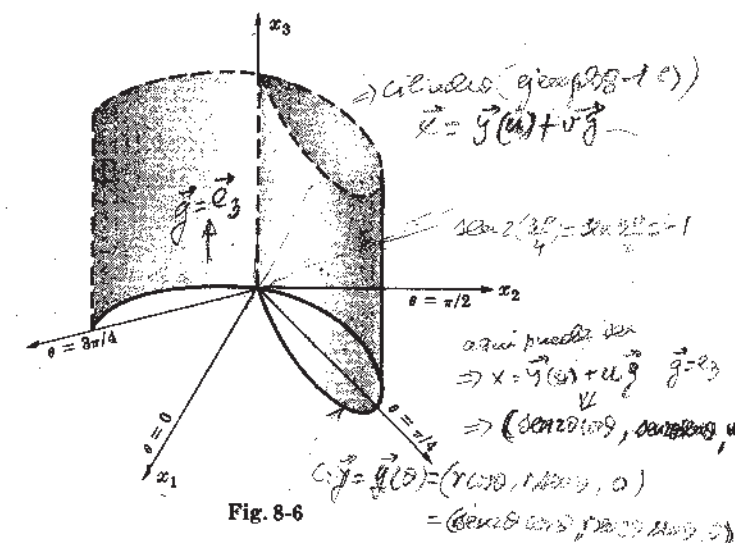 x₃
⇒ cilindro (ejemplo 8-1 c))
x⃗ = y⃗(u) + v g⃗
g⃗ = e⃗₃
sen 2(3π/4) = sen 3π/2 = -1
θ = π/2
x₂
θ = 3π/4
aqui puede ser
⇒ x = y⃗(θ) + u g⃗ g⃗ = e₃
⇒ (sen2θ cosθ, sen2θ senθ, u
θ = 0
θ = π/4
x₁
C: y⃗ = y⃗(θ) = (r cosθ, r senθ, 0)
= (sen2θ cosθ, senθ, 0)
Fig. 8-6